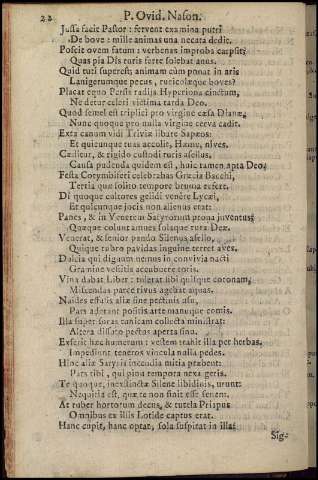 22 P. Ovid. Nason.
Jussa facit Pastor: fervent examina putri
De bove: mille animas una necata dedit.
Poscit ovem fatum: verbenas improba carpsit;
Quas pia Dîs ruris ferre solebat anus.
Quid tuti superest; animam cum ponat in aris
Lanigerumque pecus, ruricolæque boves?
Placat equo Persis radiis Hyperiona cinctum,
Ne detur celeri victima tarda Deo.
Quod semel est triplici pro virgine cæsa Dianæ,
Nunc quoque pro nulla virgine cerva cadit.
Exta canum vidi Triviæ libare Sapæos:
Et quicunque tuas accolit, Hæme, nives.
Cæditur, & rigido custodi ruris asellus.
Causa pudenda quidem est, huic tamen apta Deo.
Festa Corymbiferi celebrabas Græcia Bacchi,
Tertia quæ solito tempore bruma refert.
Di quoque cultores gelidi venêre Lycæi,
Et quicumque jocis non alienus erat:
Panes, & in Venerem Satyrorum prona juventus;
Quæque colunt amnes solaque rura Deæ.
Venerat, & senior pando Silenus asello,
Quique rubro pavidas inguine terret aves.
Dulcia qui dignum nemus in convivia nacti
Gramine vestitis accubuere toris.
Vina dabat Liber: tulerat sibi quisque coronam,
Miscendas parce rivus agebat aquas.
Naides effusis aliæ sine pectinis usu,
Pars aderant positis arte manuque comis.
Illa super suras tunicam collecta ministrat:
Altera dissuto pectus aperta sinu.
Exserit hæc humerum: vestem trahit illa per herbas,
Impediunt teneros vincula nulla pedes.
Hinc aliæ Satyris incendia mitia præbent:
Pars tibi, qui pinu tempora nexa geris.
Te quoque, inextinctæ Silene libidinis, urunt:
Nequitia est, quæ te non sinit esse senem.
At ruber hortorum decus, & tutela Priapus
Omnibus ex illis Lotide captus erat.
Hanc cupit, hanc optat, sola suspirat in illa:
Sig-